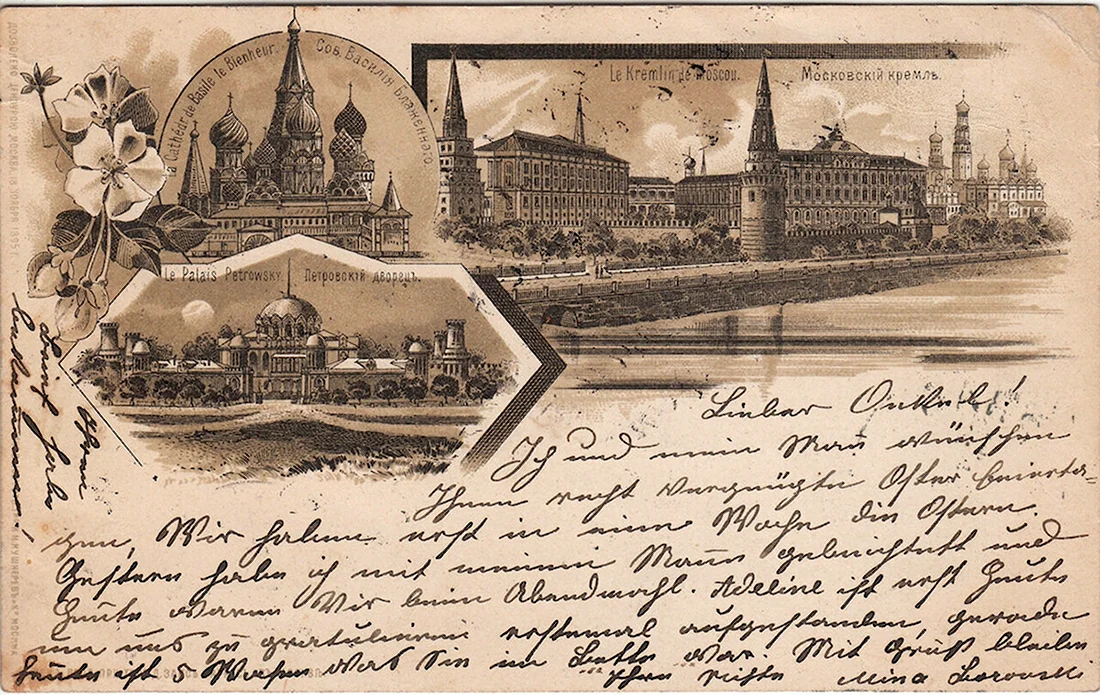 La Cathédr de Basile le Bienheur. Соб. Василія Блаженнаго.
Le Kremlin de Moscou. Московскій кремль.
Le Palais Petrowsky. Петровскій дворецъ.
Lieber Onkel!
Ich und mein Mann wünschen
Ihnen recht vergnügte Oster Feierta-
gen, Wir haben erst in eine Woche die Ostern.
Gestern habe ich mit meinem Mann gebeichtet und
Heute waren Wir beim Abendmahl. Adeline ist erst Heute
um uns zu gratulieren erstemal aufgestanden, gerade
Heute ist 5 Wochen was Sie im Bette war. Mit Gruß bleiben
Ihre Nichte Mina Borovski
Ihren
Brief habe
bekommen!